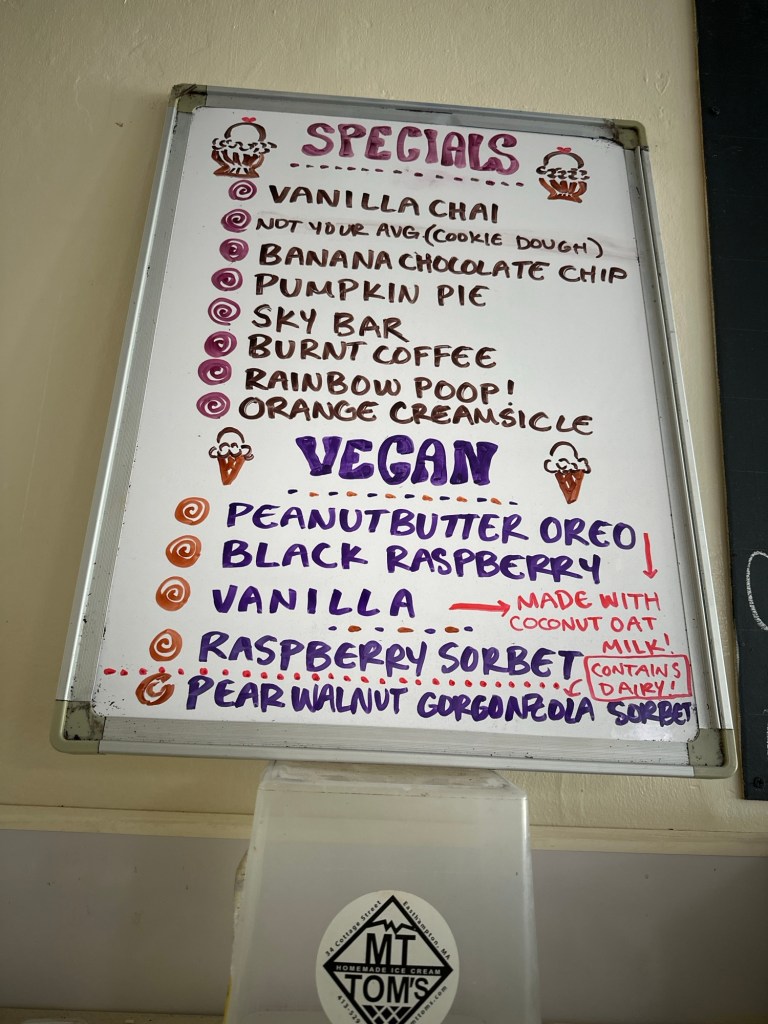 SPECIALS
VANILLA CHAI
NOT YOUR AVG. (COOKIE DOUGH)
BANANA CHOCOLATE CHIP
PUMPKIN PIE
SKY BAR
BURNT COFFEE
RAINBOW POOP!
ORANGE CREAMSICLE
VEGAN
PEANUTBUTTER OREO
BLACK RASPBERRY
VANILLA → MADE WITH
COCONUT OAT
MILK!
RASPBERRY SORBET
CONTAINS
DAIRY!
PEAR WALNUT GORGONZOLA SORBET
34 Cottage Street Easthampton, MA
MT
HOMEMADE ICE CREAM
TOM'S
413-529